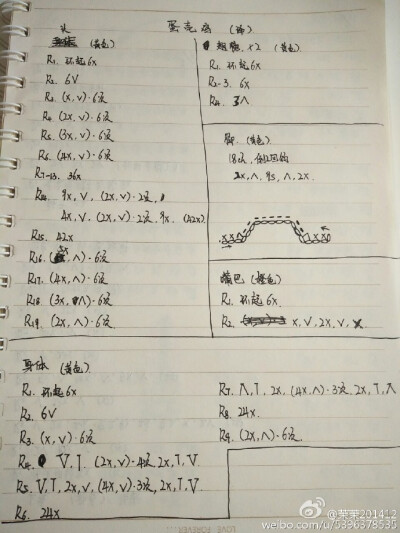 蛋壳鸡 (

头
(黄色)
R1. 环起6x
R2. 6V
R3. (x, v)·6次
R4. (2x, v)·6次
R5. (3x, v)·6次
R6. (4x, v)·6次
R7-13. 36x
R14. 9x, V, (2x, v)·2次,
4x, V, (2x, v)·2次, 9x. (42x)
R15. 42x
R16. (5x, ∧)·6次
R17. (4x, ∧)·6次
R18. (3x, ∧)·6次
R19. (2x, ∧)·6次
翅膀 ×2 (黄色)
R1. 环起6x
R2-3. 6x
R4. 3∧
脚. (黄色)
2x, ∧, 9s, ∧, 2x.
嘴巴 (橙色)
R1. 环起6x.
R2. x, v, 2x, v, x.
身体 (黄色)
R1. 环起6x
R2. 6V
R3. (x, v)·6次
R4. V, T, (2x, v)·4次, 2x, T, V.
R5. V, T, 2x, v, (4x, v)·3次, 2x, T, V.
R6. 24x
R7. ∧, T, 2x, (4x, ∧)·3次, 2x, T, ∧
R8. 24x
R9. (2x, ∧)·6次
@茉茉201412
weibo.com/u/5396378535